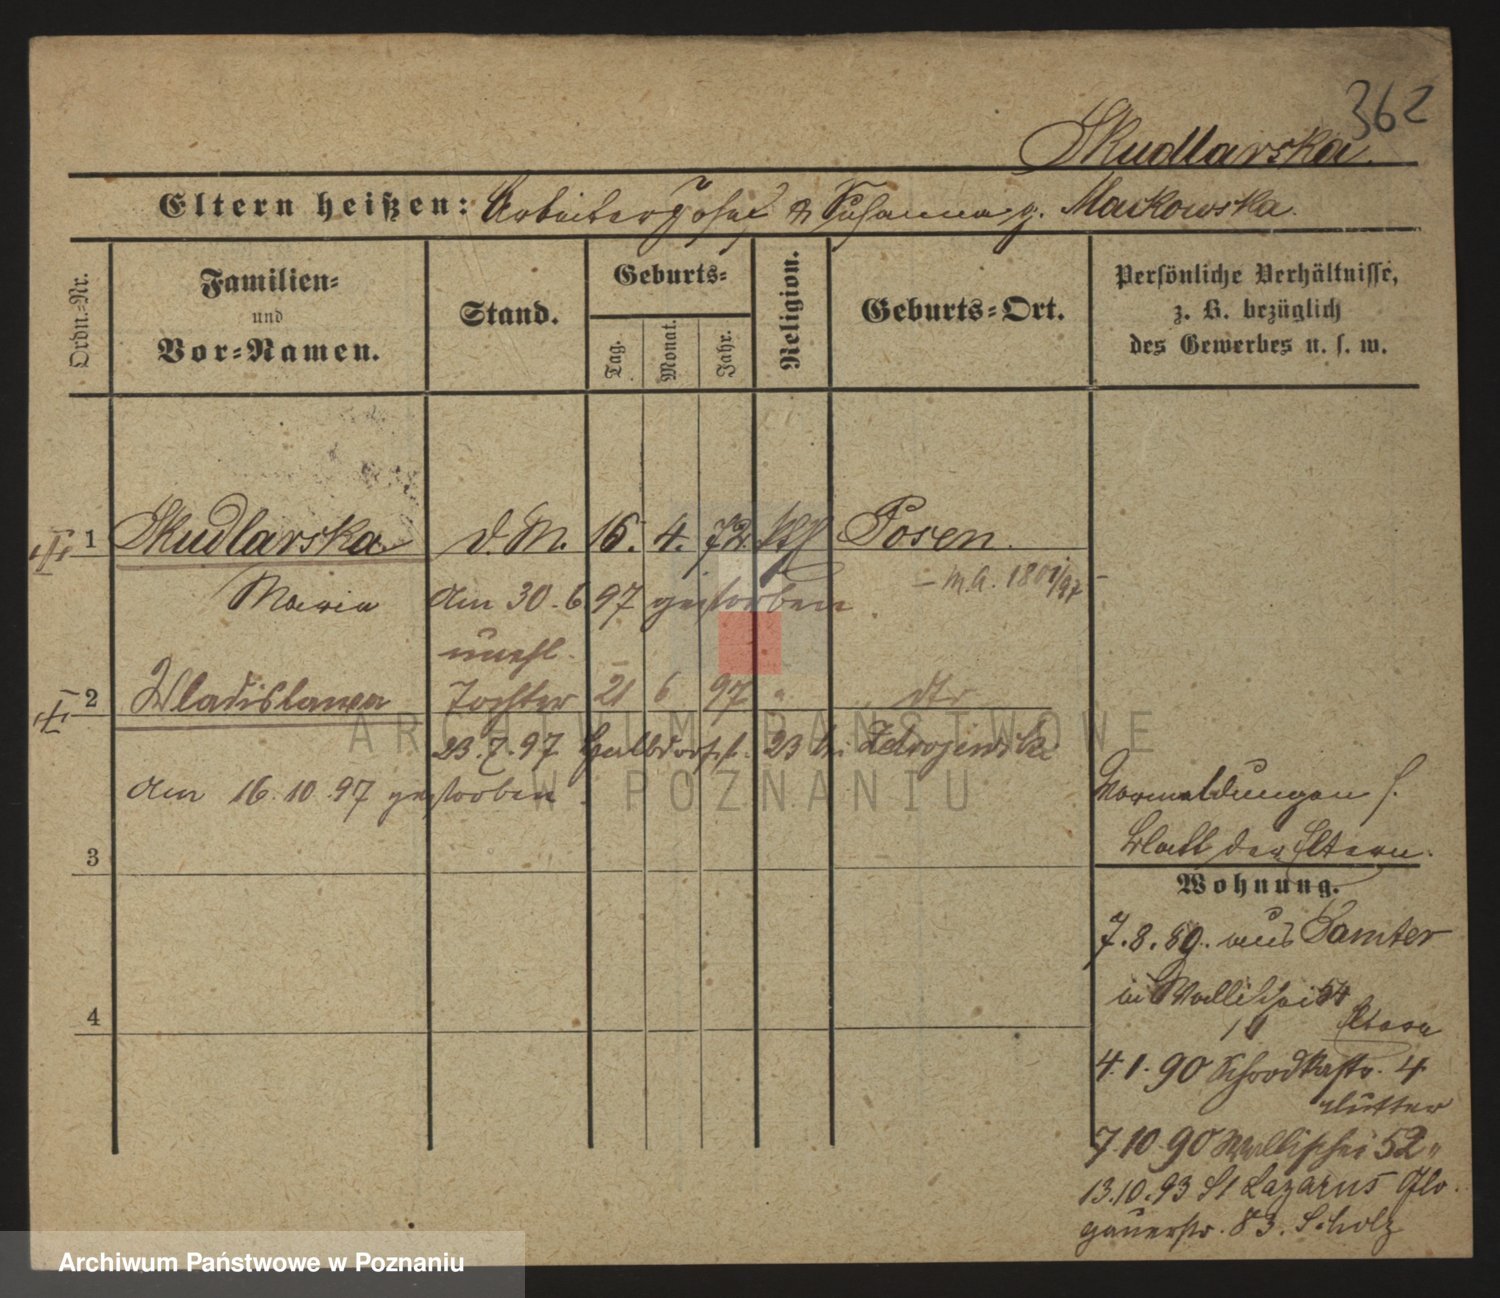 362
Skudlarska.
Eltern heißen: Arbeiter Josef & Susanna g. Maćkowska.
Ordn.-Nr.
Familien-
und
Vor-Namen.
Stand.
Geburts-
Tag.
Monat.
Jahr.
Religion.
Geburts-Ort.
Persönliche Verhältnisse,
z. B. bezüglich
des Gewerbes u. s. w.
1 Skudlarska d. M. 16. 4. 72. kth Posen.
Maria am 30. 6. 97 gestorben
unehl.
2 Wladislawa Tochter 21 6 97 " dto
23. 7. 97 Halbdorfst. 23 b. Zdrojewski
am 16. 10. 97 gestorben.
Vormeldungen s.
Blatt der Eltern.
3
Wohnung.
7. 8. 89. aus Samter
in Wallischei 54
Eltern
4
4. 1. 90 Schrodkastr. 4
Mutter
7. 10. 90 Wallischei 52 "
13. 10. 93 St Lazarus Glo-
gauerstr. 83. Scholz
ARCHIWUM PAŃSTWOWE
W POZNANIU
Archiwum Państwowe w Poznaniu